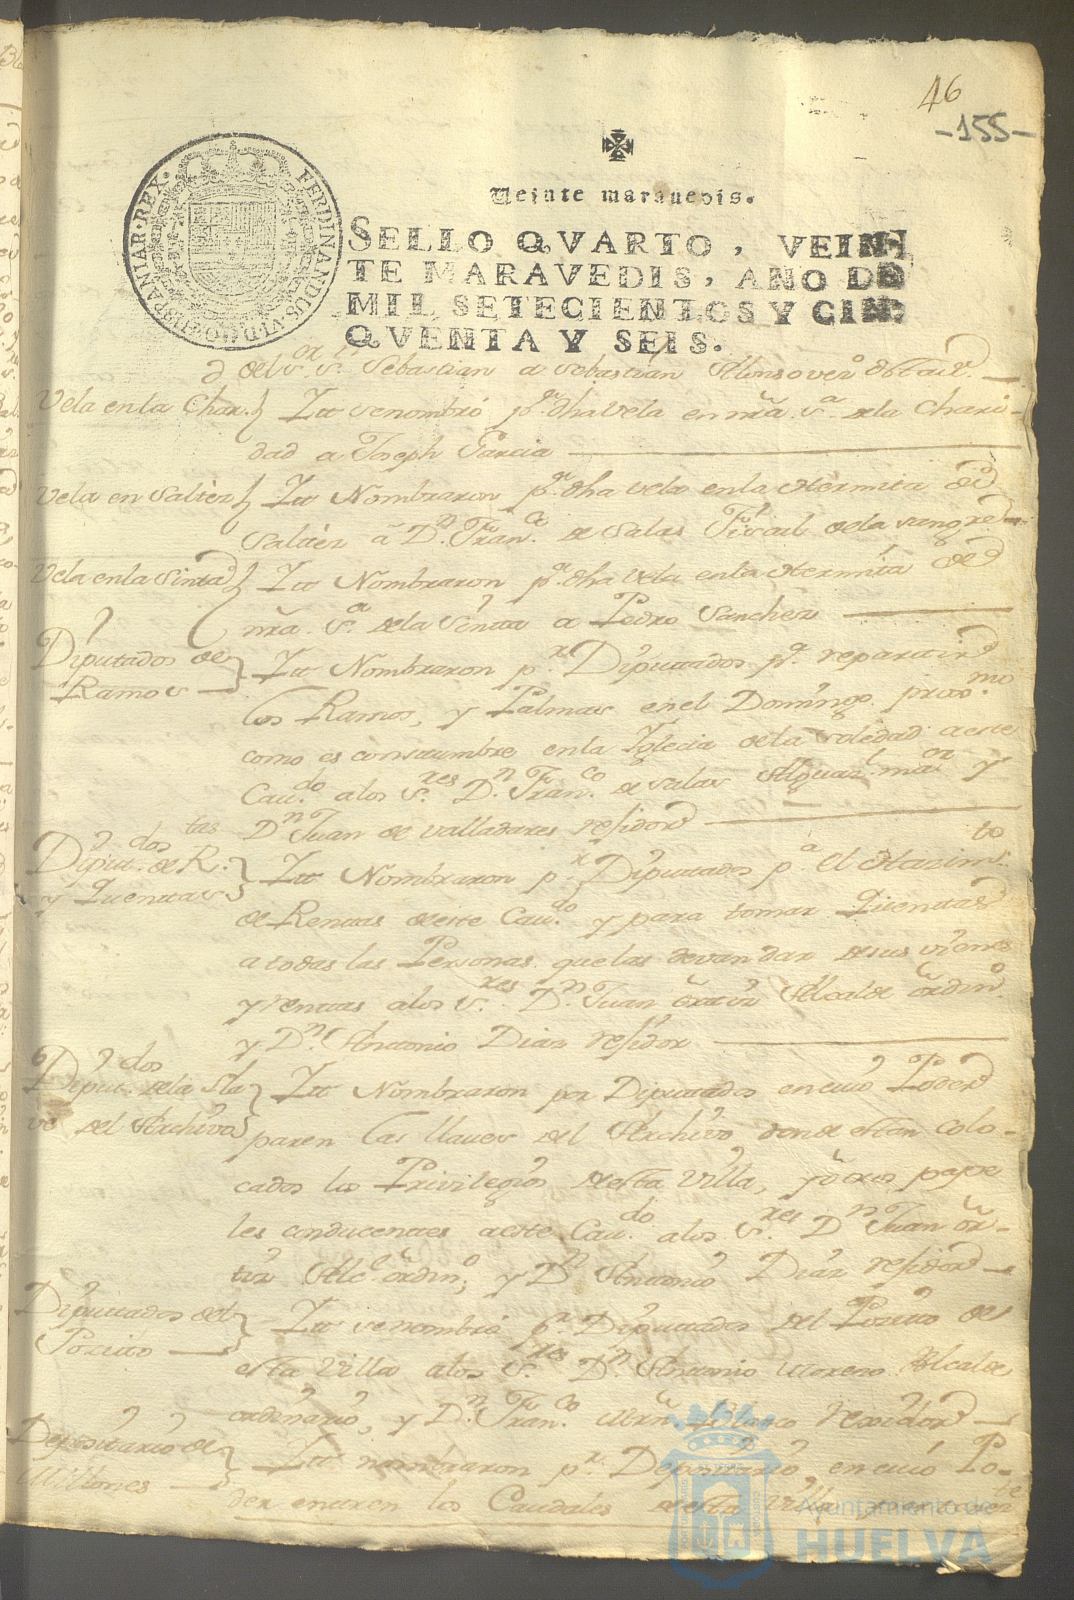 46
-155-
FERDINANDUS.VI.D.G.HISPANIAR.REX.
Veinte maravedis.
SELLO QVARTO, VEIN
TE MARAVEDIS, AÑO DE
MIL SETECIENTOS Y CIN
QVENTA Y SEIS.
del Sr. Sn. Sebastian a Sebastian Alonso
Vela en la Char. Itt se nombró pa. dha vela en nra. Sa. de la Chari-
dad a Joseph Garcia
Vela en Saltés Itt Nombraron pa. dha vela en la Hermita de
Saltés a Dn. Franco. de Salas Fiscal de la Sangre
Vela en la Sinta Itt Nombraron pa. dha vela en la Hermita de
nra. Sa. de la Sinta a Pedro Sanchez
Diputados de
Ramos
Itt Nombraron pr. Diputados pa. repartir
los Ramos, y Palmas en el Domingo proxmo
como es constumbre en la Iglecia de la Soledad a este
Cavdo. a los Sres. Dn. Franco. de Salas Alguazl. maor y
Dn. Juan de Valladares rejidor
Diputdos. de Rtas.
y Quentas
Itt Nombraron pr. Diputados pa. el Hazimto
de Rentas de este Cavdo. y para tomar Quentas
a todas las Personas que las devan dar de sus vienes
y rentas a los Sres. Dn. Juan Alcalde ordino.
y Dn. Antonio Diaz rejidor
Diputdos. de la Lla
ve del Archivo
Itt Nombraron por Diputados en cuio Poder
paren las llaves del Archivo donde estan colo-
cados los Privilegios de esta Villa, y otros pape
les conducentes a este Cavdo. a los Sres. Dn. Juan
Alce. ordino; y Dn. Antonio Diaz rejidor
Diputados del
Pozito
Itt se nombró pr. Diputados del Pozito de
esta Villa a los Sres. Dn. Antonio Moreno Alcalde
ordinario, y Dn. Franco. Mrn Blanco rexidor
Depositario de
Millones
Itt nombraron pr. Depositario en cuio Po-
der entren los Caudales de esta Villa
Ayuntamiento de
HUELVA